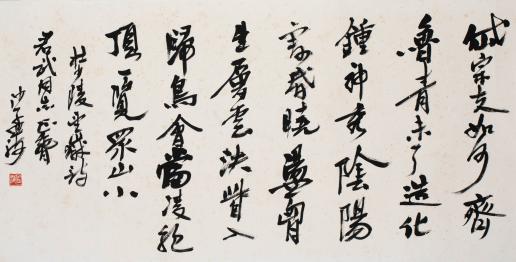 岱宗夫如何齊
魯青未了造化
鍾神秀陰陽
割昏曉盪胸
生層雲決眥入
歸鳥會當凌絕
頂一覽眾山小
杜陵望嶽詩
武同志正
沙孟海